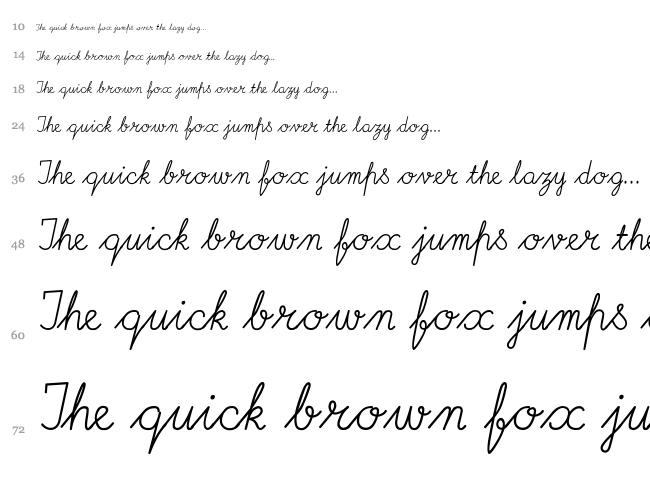 10 The quick brown fox jumps over the lazy dog...
14 The quick brown fox jumps over the lazy dog...
18 The quick brown fox jumps over the lazy dog...
24 The quick brown fox jumps over the lazy dog...
36 The quick brown fox jumps over the lazy dog...
48 The quick brown fox jumps over the
60 The quick brown fox jumps
72 The quick brown fox ju